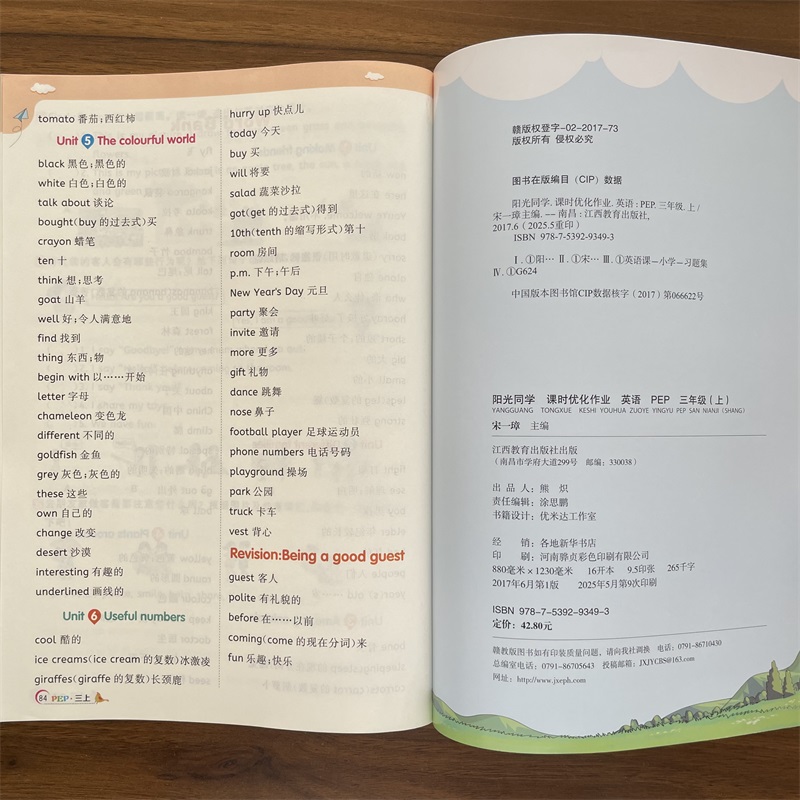 tomato 番茄;西红柿
Unit 5 The colourful world
black 黑色;黑色的
white 白色;白色的
talk about 谈论
bought(buy 的过去式)买
crayon 蜡笔
ten 十
think 想;思考
goat 山羊
well 好;令人满意地
find 找到
thing 东西;物
begin with 以……开始
letter 字母
chameleon 变色龙
different 不同的
goldfish 金鱼
grey 灰色;灰色的
these 这些
own 自己的
change 改变
desert 沙漠
interesting 有趣的
underlined 画线的
Unit 6 Useful numbers
cool 酷的
ice creams(ice cream 的复数)冰激凌
giraffes(giraffe 的复数)长颈鹿
84 PEP·三上
hurry up 快点儿
today 今天
buy 买
will 将要
salad 蔬菜沙拉
got(get 的过去式)得到
10th(tenth 的缩写形式)第十
room 房间
p.m. 下午;午后
New Year's Day 元旦
party 聚会
invite 邀请
more 更多
gift 礼物
dance 跳舞
nose 鼻子
football player 足球运动员
phone numbers 电话号码
playground 操场
park 公园
truck 卡车
vest 背心
Revision:Being a good guest
guest 客人
polite 有礼貌的
before 在……以前
coming(come 的现在分词)来
fun 乐趣;快乐
赣版权登字-02-2017-73
版权所有 侵权必究
图书在版编目（CIP）数据
阳光同学.课时优化作业.英语:PEP.三年级.上/
宋一璋主编.--南昌:江西教育出版社,
2017.6（2025.5重印）
ISBN 978-7-5392-9349-3
Ⅰ.①阳… Ⅱ.①宋… Ⅲ.①英语课-小学-习题集
Ⅳ.①G624
中国版本图书馆CIP数据核字（2017）第066622号
阳光同学 课时优化作业 英语 PEP 三年级（上）
YANGGUANG TONGXUE KESHI YOUHUA ZUOYE YINGYU PEP SAN NIANJI (SHANG)
宋一璋 主编
江西教育出版社出版
（南昌市学府大道299号 邮编：330038）
出 品 人：熊 炽
责任编辑：涂思鹏
书籍设计：优米达工作室
经 销：各地新华书店
印 刷：河南骅贞彩色印刷有限公司
880毫米×1230毫米 16开本 9.5印张 265千字
2017年6月第1版 2025年5月第9次印刷
ISBN 978-7-5392-9349-3
定价：42.80元
赣教版图书如有印装质量问题，请向我社调换 电话：0791-86710430
总编室电话：0791-86705643 投稿邮箱：JXJYCBS@163.com
网址：http://www.jxeph.com